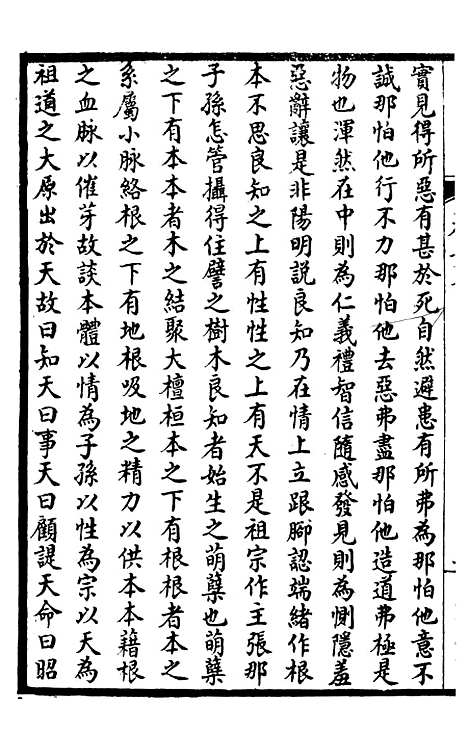 實見得所惡有甚於死自然避患有所弗為那怕他意不
誠那怕他行不力那怕他去惡弗盡那怕他造道弗極是
物也渾然在中則為仁義禮智信隨感發見則為惻隱羞
惡辭讓是非陽明説良知乃在情上立跟腳認端緒作根
本不思良知之上有性性之上有天不是祖宗作主張那
子孫怎管攝得住譬之樹木良知者始生之萌蘖也萌蘖
之下有本本者木之結聚大檀桓本之下有根根者本之
系屬小脉絡根之下有地根吸地之精力以供本本藉根
之血脉以催芽故談本體以情為子孫以性為宗以天為
祖道之大原出於天故曰知天曰事天曰顧諟天命曰昭